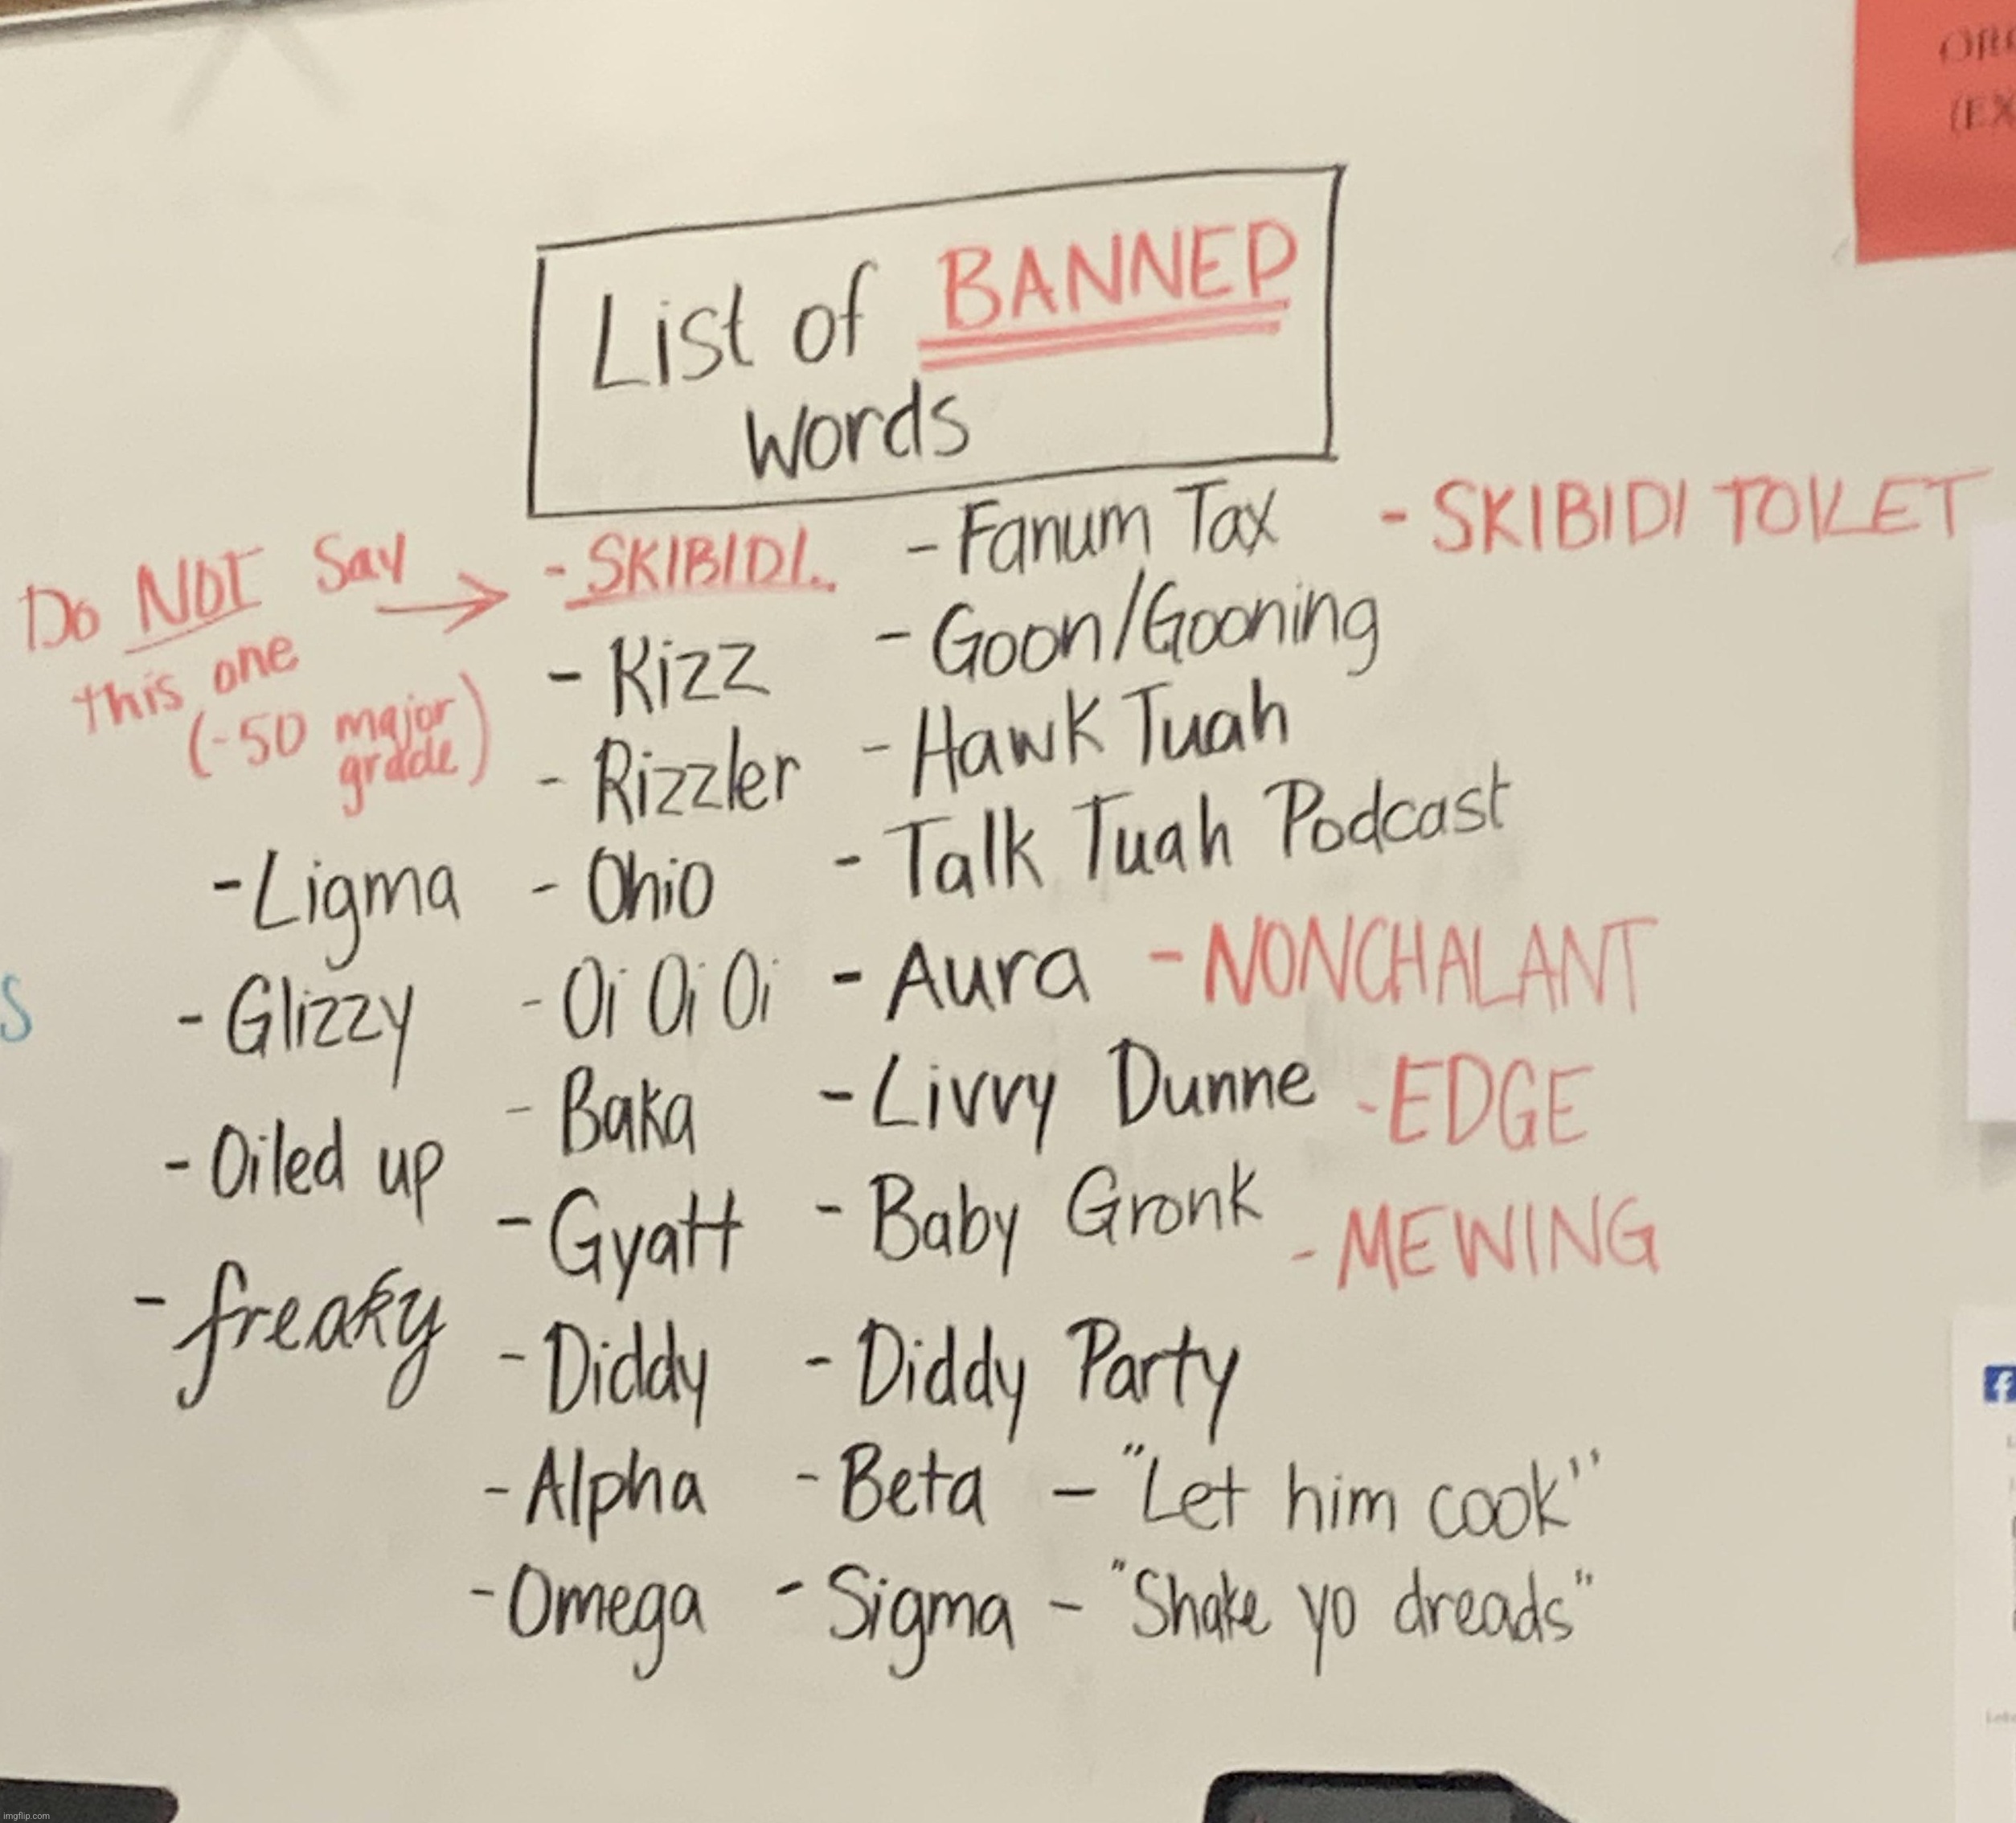 ORG
(EX
List of BANNED
words
Do NOT Say
this one
(-50 major
grade)
- SKIBIDI
- Fanum Tax
- SKIBIDI TOILET
- Rizz
- Goon/Gooning
- Rizzler
- Hawk Tuah
- Ligma
- Ohio
- Talk Tuah Podcast
- Glizzy
- Oi Oi Oi
- Aura
- NONCHALANT
S
- Oiled up
- Baka
- Livvy Dunne
- EDGE
- freaky
- Gyatt
- Baby Gronk
- MEWING
- Diddy
- Diddy Party
- Alpha
- Beta
- "Let him cook"
- Omega
- Sigma
- "Shake yo dreads"
f
imgflip.com